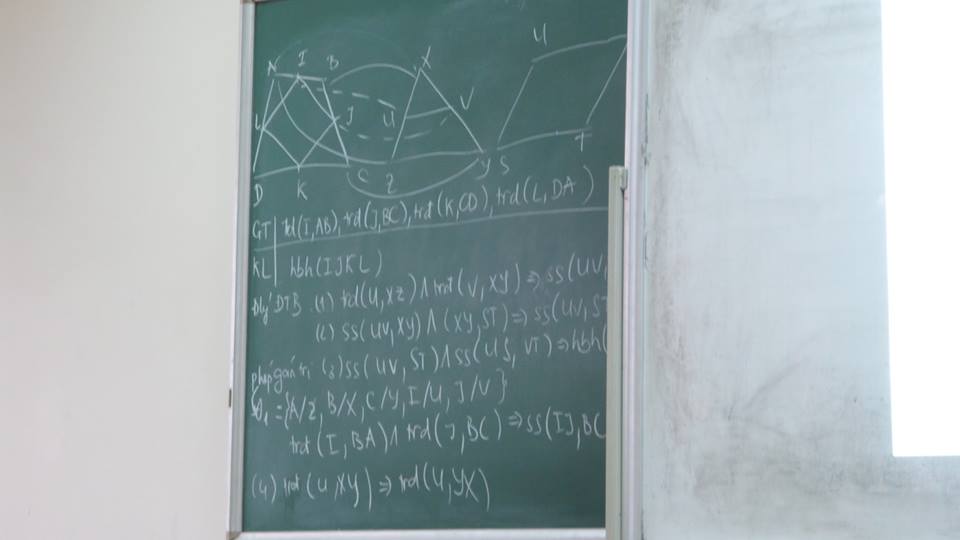 A I B X U
L J U V
D K C Z Y S T
GT trd(I,AB), trd(J,BC), trd(K,CD), trd(L,DA)
KL hbh(IJKL)
Đlý ĐTB (1) trd(U,XZ) ∧ trd(V,XY) ⇒ ss(UV,
(2) ss(UV,XY) ∧ (XY,ST) ⇒ ss(UV,ST
(3) ss(UV,ST) ∧ ss(US,VT) ⇒ hbh(
θ₁ = {A/Z, B/X, C/Y, I/U, J/V}
trd(I,BA) ∧ trd(J,BC) ⇒ ss(IJ,BC
(4) trd(U,XY) ⇒ trd(U,YX)